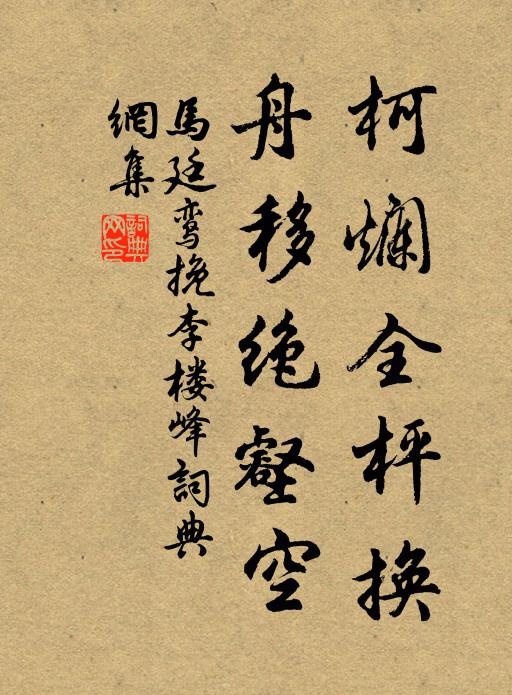 柯爛全枰換
舟移绝壑空
馬廷鸾挽李楼峰詞典
網集
詞典网印